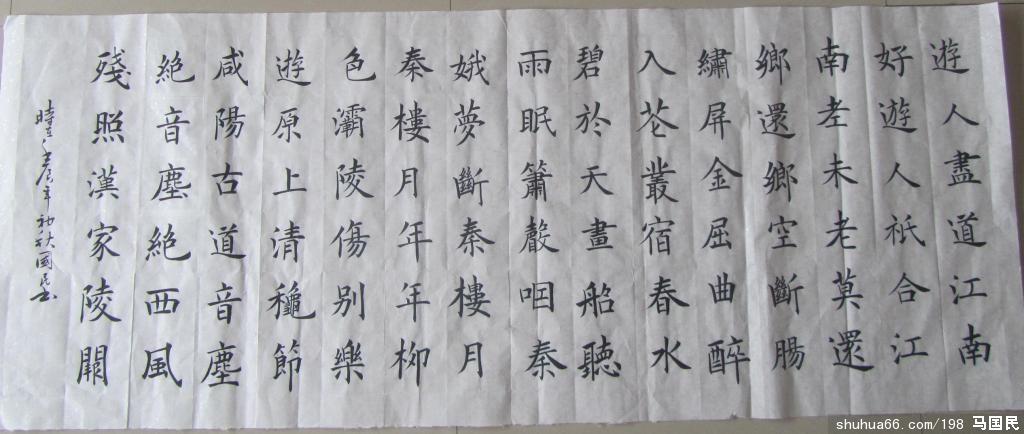 遊人盡道江南
好遊人祇合江
南老未老莫還
鄉還鄉空斷腸
繡屏金屈曲醉
入花叢宿春水
碧於天畫船聽
雨眠簫聲咽秦
娥夢斷秦樓月
秦樓月年年柳
色灞陵傷別樂
遊原上清穐節
咸陽古道音塵
絕音塵絕西風
殘照漢家陵闕
時在壬辰年初秋國民書
shuhua66.com/198 马国民